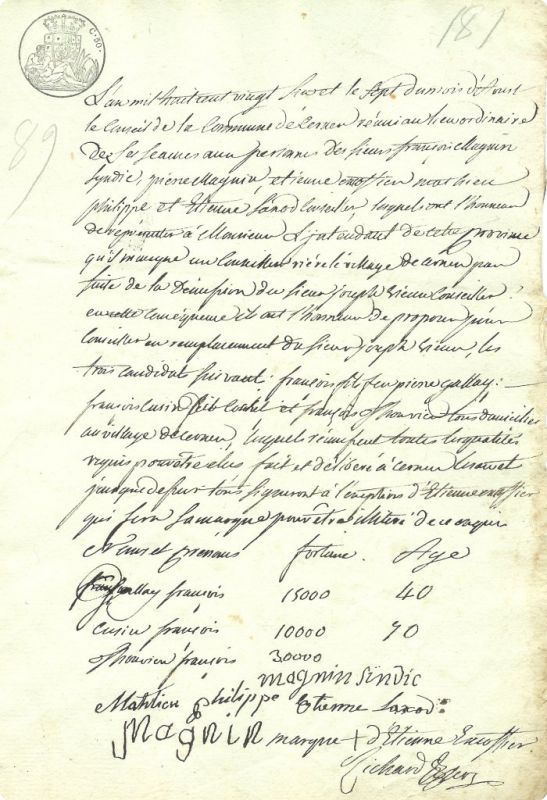 181
C. 80.
89
L'an mil huit cent vingt huit et le sept du mois d'Aout
le Conseil de la Commune de Cernex réuni au lieu ordinaire
de ses seances aux personnes des sieurs françois Magnin
Syndic, pierre Magnin, etienne emossier mathieu
philippe et Etienne Saxod Conseiller, lesquels ont l'honneur
de représenter à Monsieur L'jntendant de cette province
qu'il manque un Conseiller rière le village de Cernex par
suite de la Démission du sieur joseph vieux Conseiller.
en cette conséquence ils ont l'honneur de proposer pour
Conseiller en remplacement du sieur joseph vieux, les
trois candidat suivant: françois fils feu pierre gallay: –
françois Cusin et françois Thouvier tous domicilies
au village de Cernex, lesquels réunissent toutes les qualités
requis pour être elus fait et délibéré à Cernex
jour que dessus tous signeront à l'exception d'Etienne emossier
qui fera sa marque pour être illitéré de ce enquis
Noms et prénoms fortune. Age
gallay françois 15000 40
Cusin françois 10000 70
Thouvier françois 30000
magnin sindic
Mathieu philippe Etienne Saxod:
Magnin marque + d'Etienne Emossier.
Richard